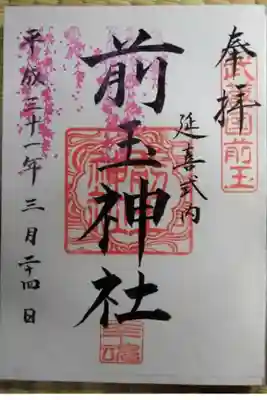 奉拝
前玉
延喜式内
前玉神社
平成三十一年三月二十四日